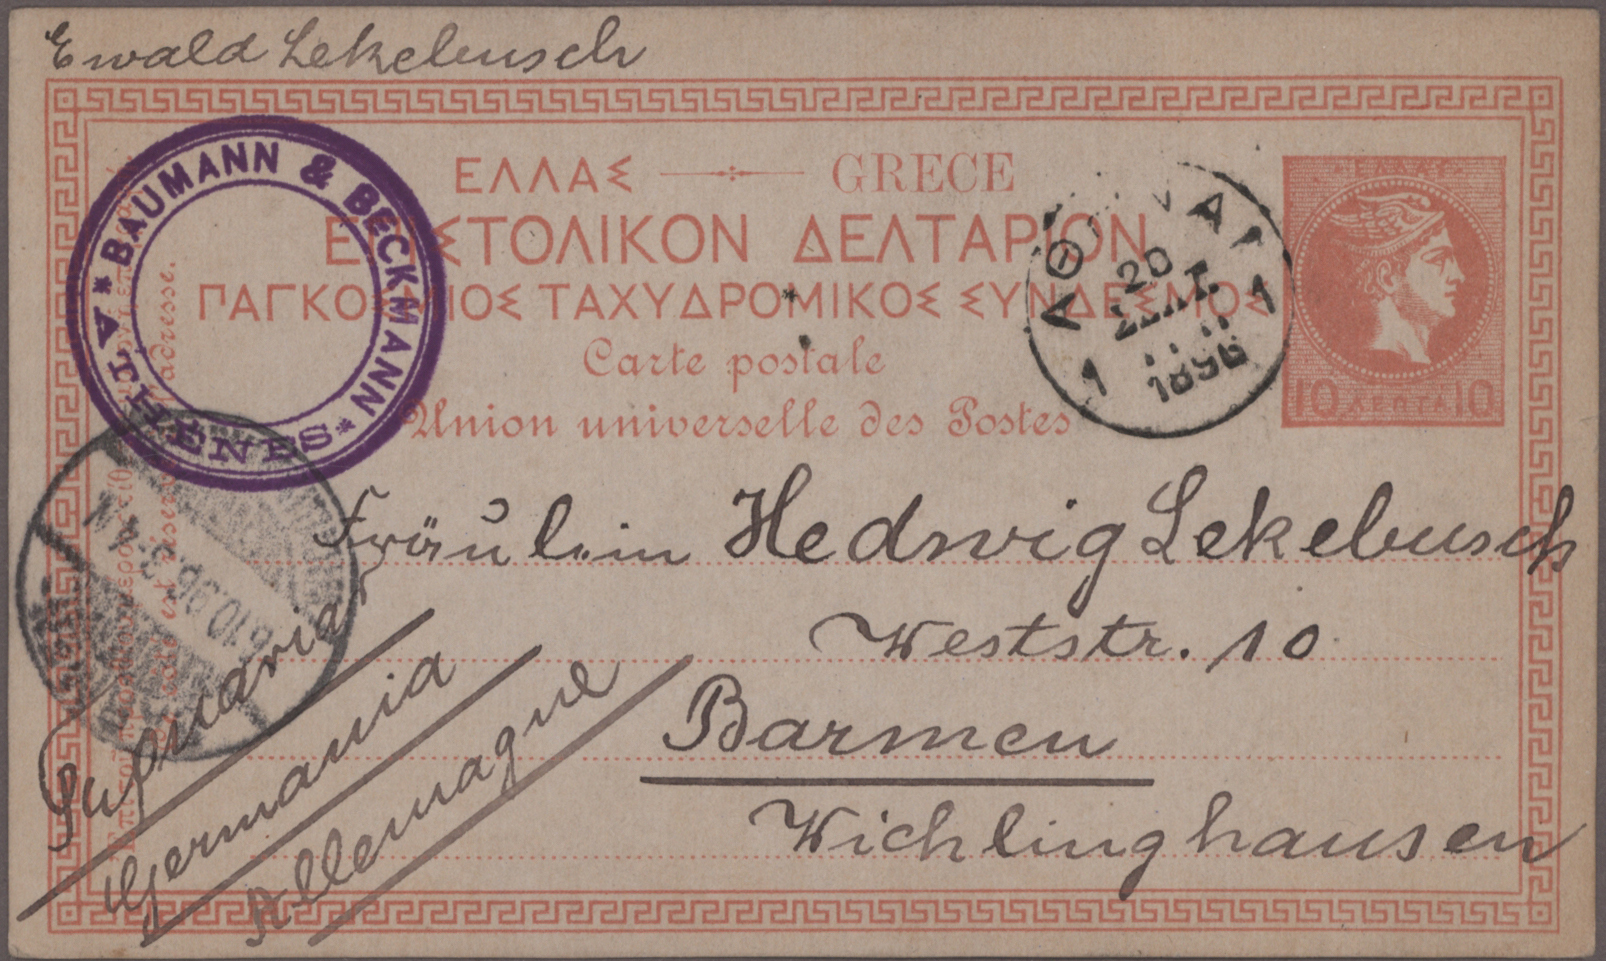 Ewald Lekebusch
ΕΛΛΑΣ GRECE
ΕΠΙΣΤΟΛΙΚΟΝ ΔΕΛΤΑΡΙΟΝ
ΠΑΓΚΟΣΜΙΟΣ ΤΑΧΥΔΡΟΜΙΚΟΣ ΣΥΝΔΕΣΜΟΣ
Carte postale
Union universelle des Postes
* BAUMANN & BECKMANN *
ATHÈNES
ΑΘΗΝΑΙ
20
ΣΕΠΤ.
1896
1 1
ΕΛΛΑΣ
10 ΛΕΠΤΑ 10
adresse.
6.10.96. 3-4 N
Fräulein Hedwig Lekebusch
Weststr. 10
Barmen
Wichlinghausen
Germania
Allemagne